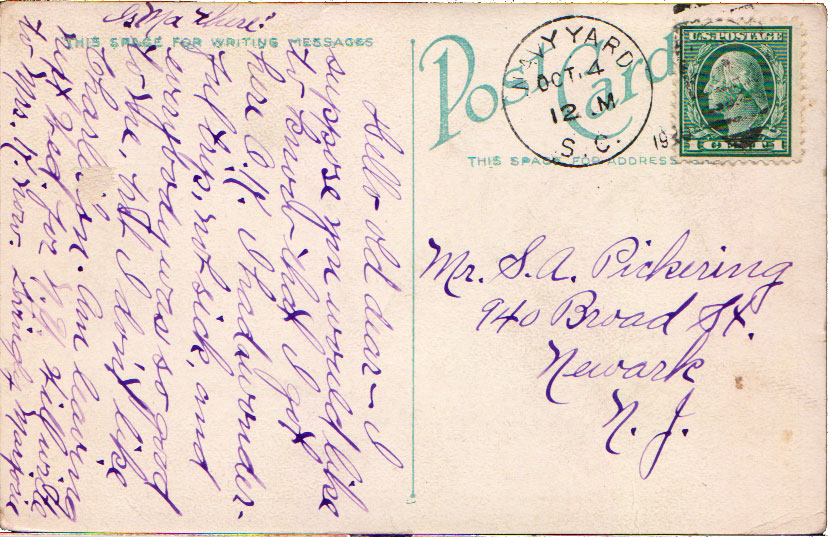 Is Ma there?
THIS SPACE FOR WRITING MESSAGES
Hello old dear - I
suppose you would like
to know that I got
here O.K. I had wonder-
ful trip, not sick, and
everybody was so good
to me, but I don't like
Charleston. Am leaving
next Wed. for N.Y. Will write
to Mrs. K. now. Lovingly Marjorie
Post Card
THIS SPACE FOR ADDRESS
NAVY YARD
OCT. 4
12 M
S. C.
U.S. POSTAGE
1 CENT 1
Mr. S.A. Pickering
940 Broad St.
Newark
N. J.